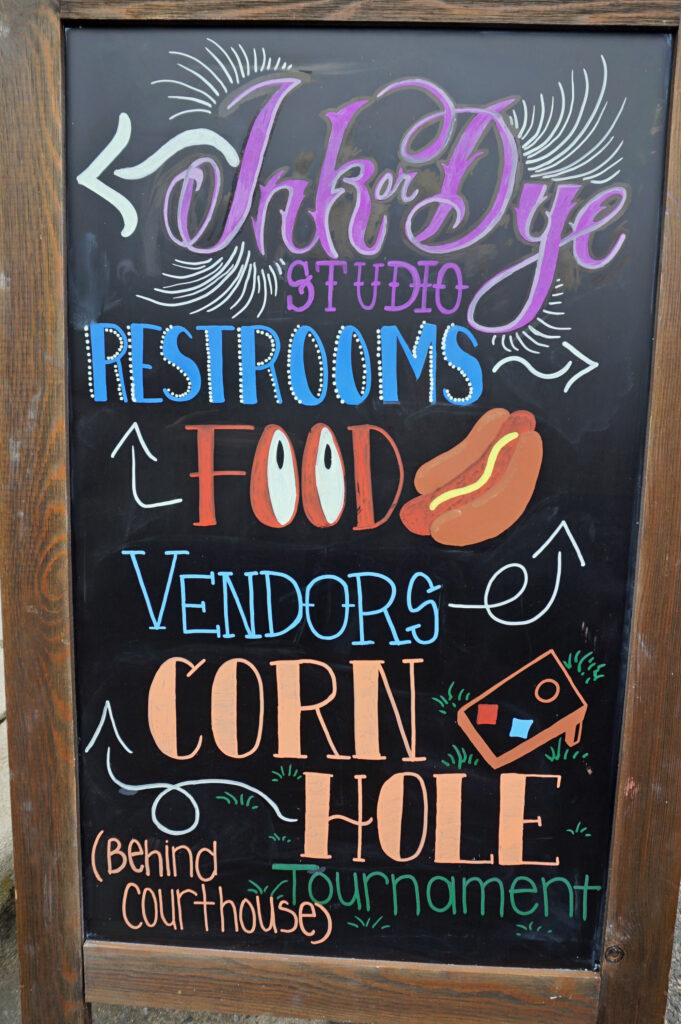 Ink or Dye
STUDIO
RESTROOMS
FOOD
VENDORS
CORN
HOLE
Tournament
(Behind
courthouse)